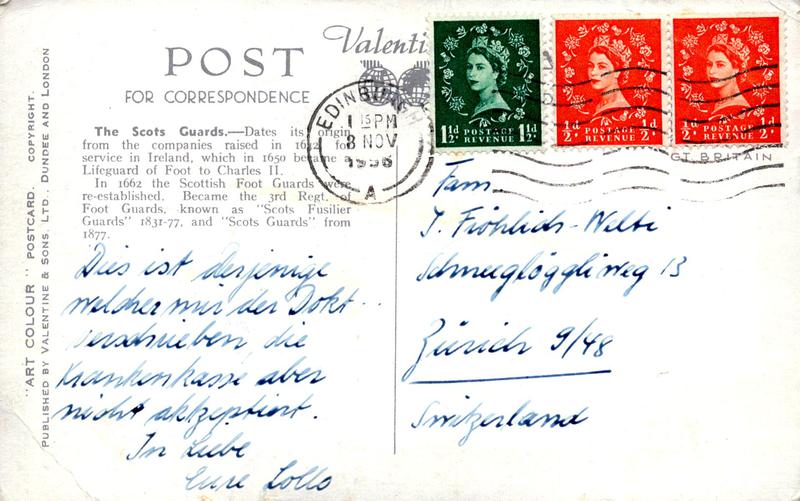 "ART COLOUR" POSTCARD. COPYRIGHT.
PUBLISHED BY VALENTINE & SONS, LTD., DUNDEE AND LONDON
POST
FOR CORRESPONDENCE
Valenti
The Scots Guards.—Dates its origin
from the companies raised in 1642 for
service in Ireland, which in 1650 became a
Lifeguard of Foot to Charles II.
In 1662 the Scottish Foot Guards were
re-established. Became the 3rd Regt. of
Foot Guards, known as "Scots Fusilier
Guards" 1831-77, and "Scots Guards" from
1877.
EDINBURGH
1 15 PM
8 NOV
1956
A
1½d POSTAGE REVENUE 1½d
½d POSTAGE REVENUE ½d
½d POSTAGE REVENUE ½d
GT BRITAIN
Dies ist derjenige
welcher mir der Dokt..
verschrieben die
Krankenkasse aber
nicht akkzeptiert.
In Liebe
Eure Lollo
Fam.
J. Fröhlich-Welti
Schneeglöggliweg 13
Zürich 9/48
Switzerland